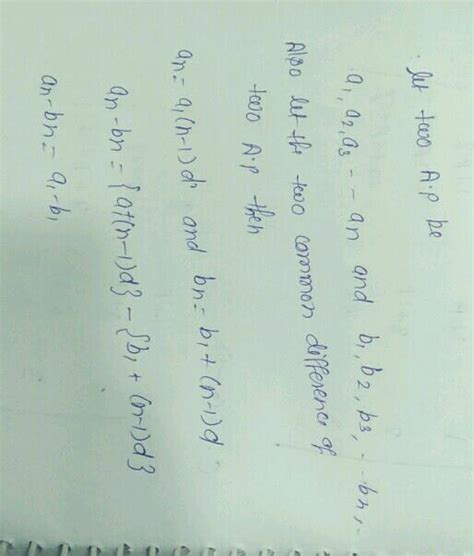 let two A.P be
a1, a2, a3 - - an and b1, b2, b3, - - bn, -
Also let the two common difference of
two A.P then
an = a1(n-1)d and bn = b1 + (n-1)d
an-bn = {a1+(n-1)d} - {b1 + (n-1)d}
an-bn = a1-b1